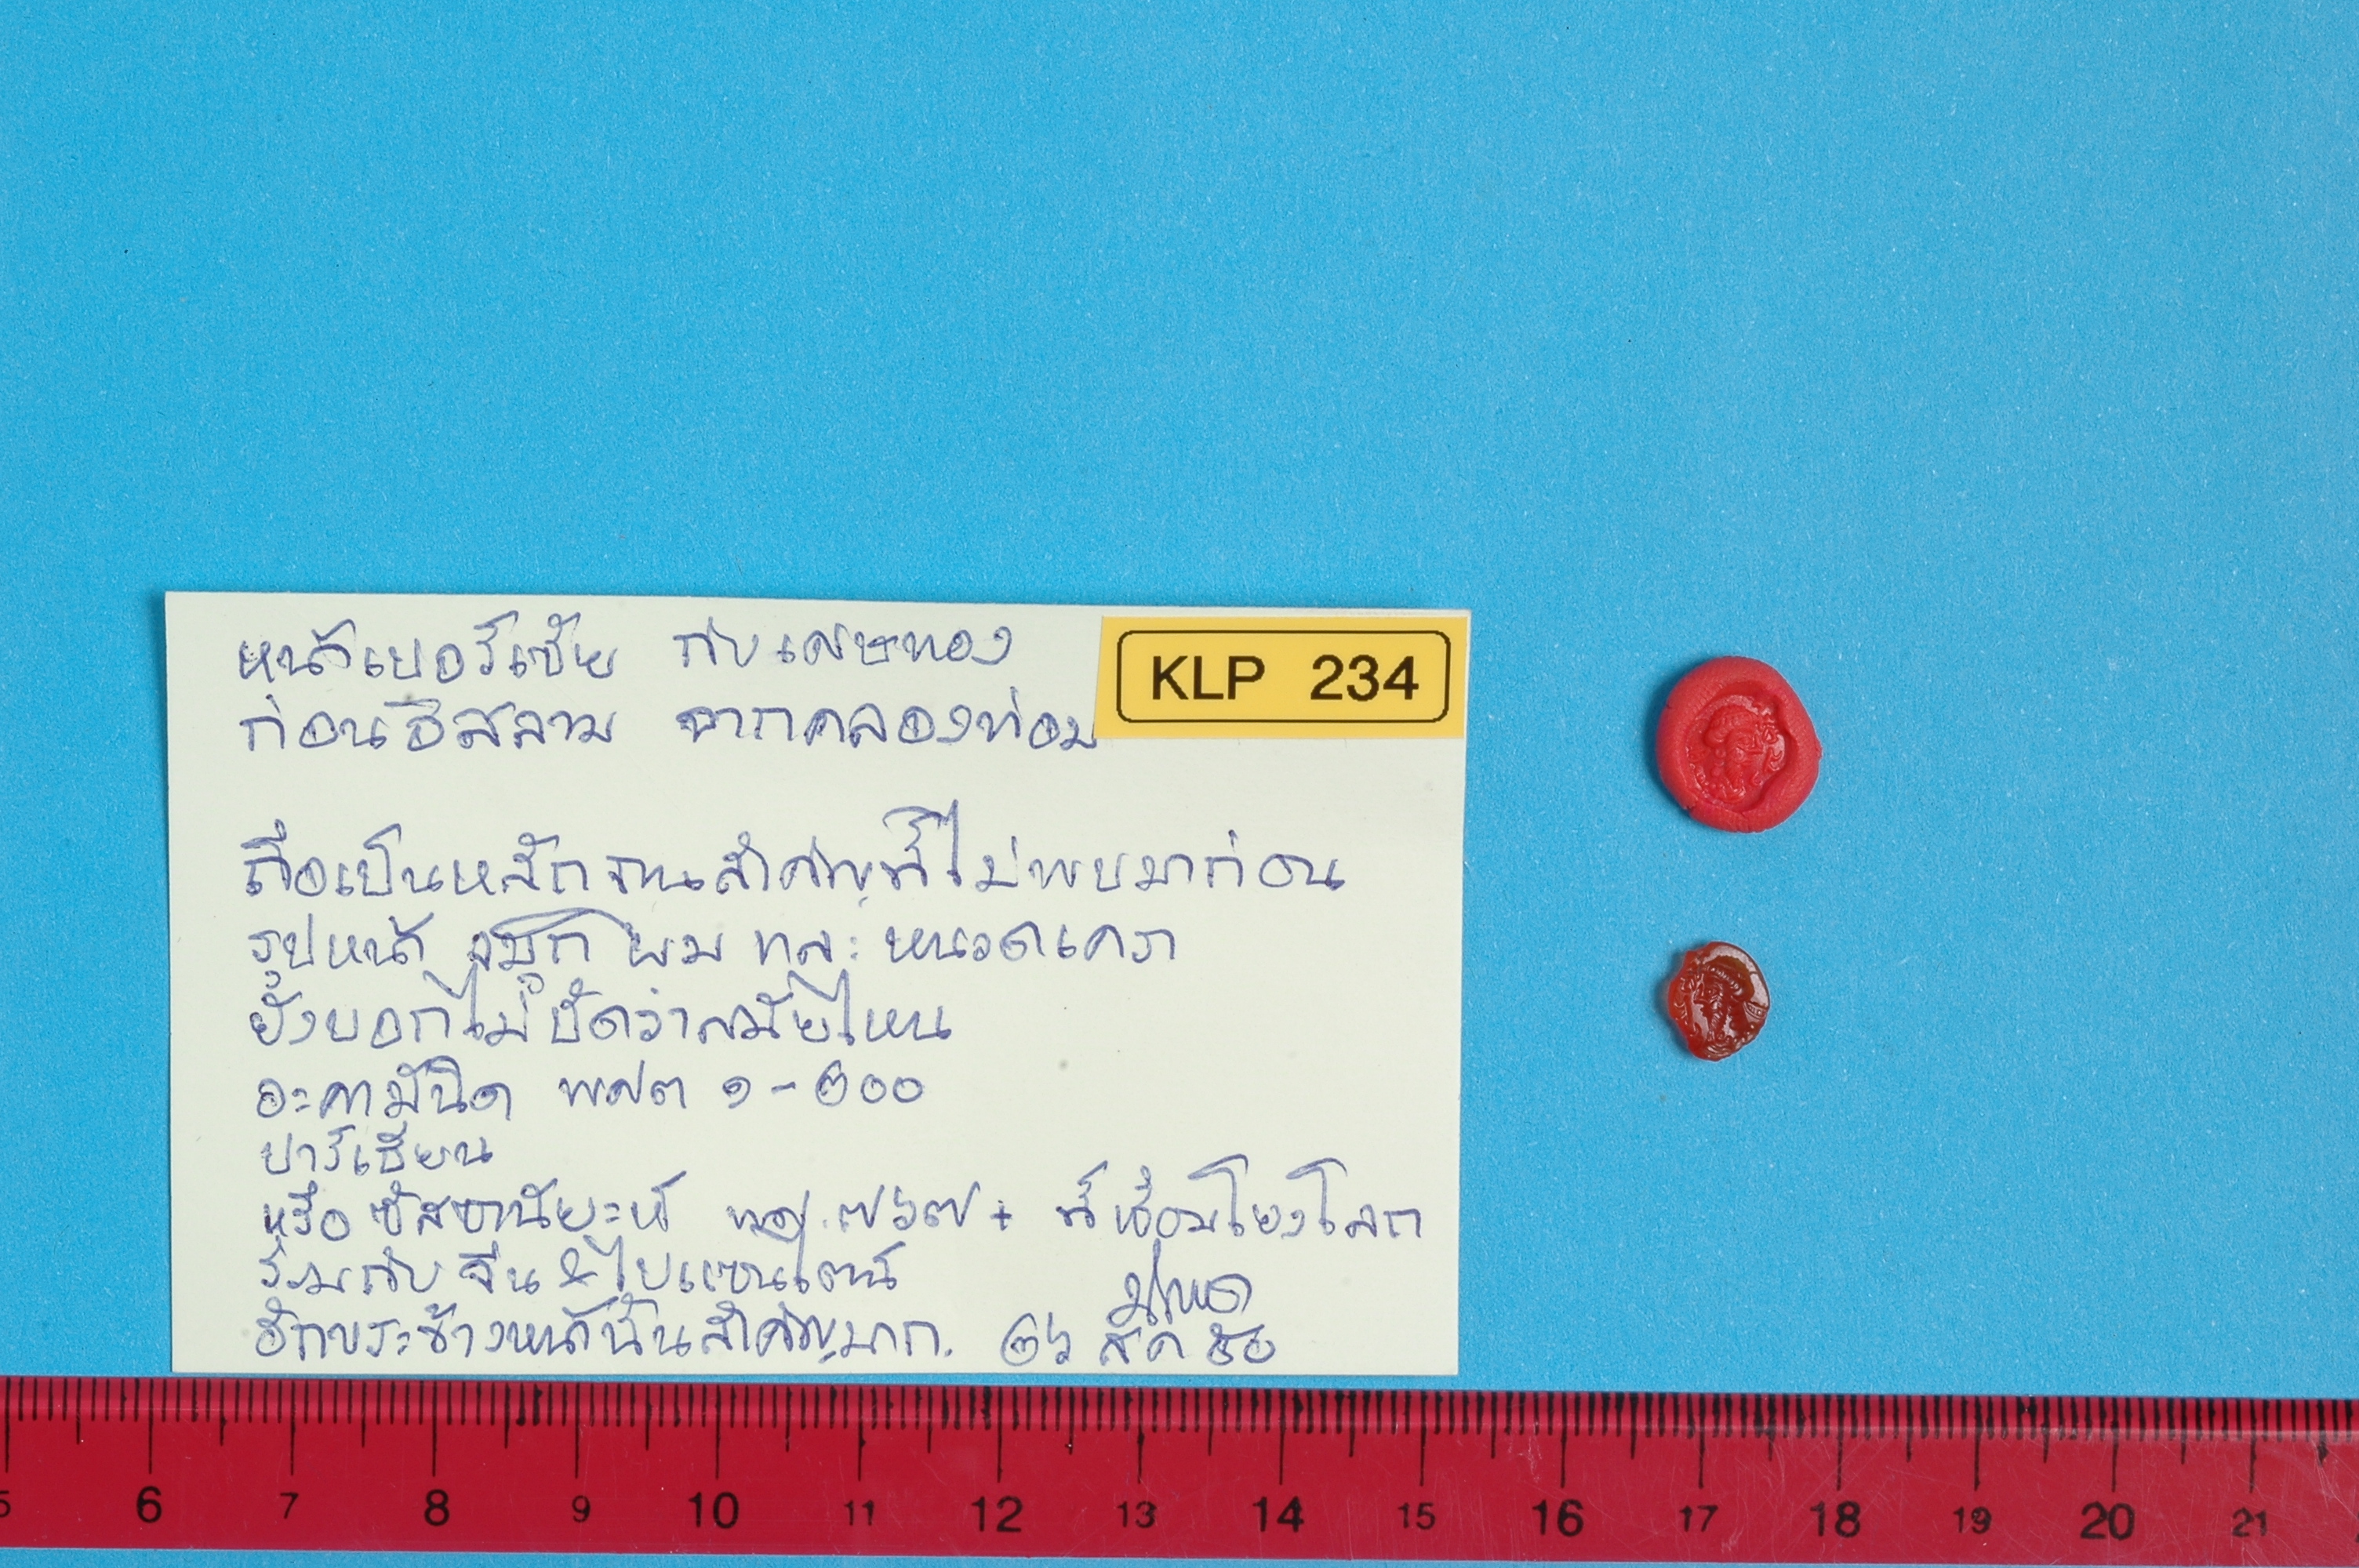 หน้าเปอร์เซีย กับเศษทอง
ก่อนอิสลาม จากคลองท่อม
KLP 234
ถือเป็นหลักฐานสำคัญที่ไม่พบมาก่อน
รูปหน้า จมูก ผม และหนวดเครา
ยังบอกไม่ชัดว่าสมัยไหน
อะคามินิด พศต ๑-๒๐๐
ปาร์เธียน
หรือ ซัสซานิยะห์ พศ.๗๖๗+ ที่เชื่อมโยงโลก
ร่วมกับ จีน & ไบแซนไตน์
อักขระข้างหน้านั้นสำคัญมาก. ๒๖ สค ๕๐
5 6 7 8 9 10 11 12 13 14 15 16 17 18 19 20 21